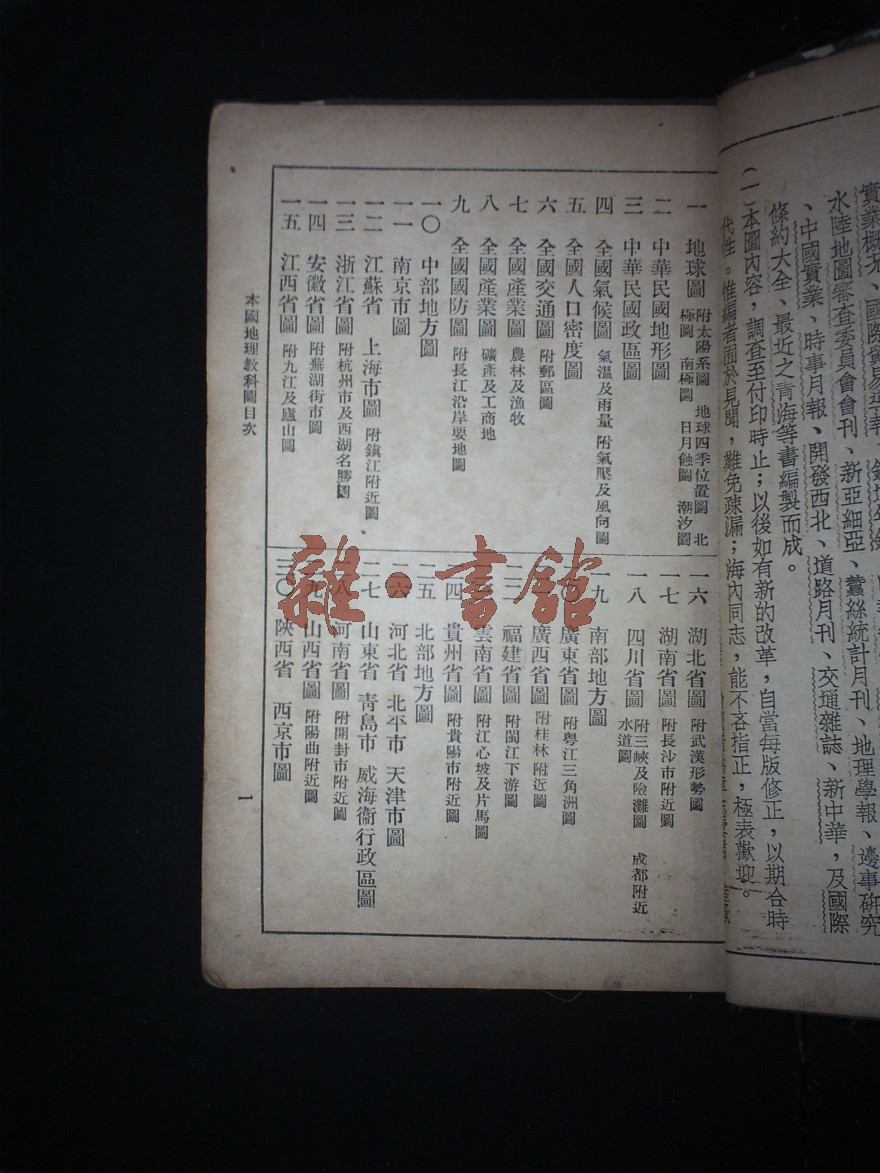 實業概況、國際貿易導報、
水陸地圖審查委員會會刊、新亞細亞、蠶絲統計月刊、地理學報、邊事研究
、中國實業、時事月報、開發西北、道路月刊、交通雜誌、新中華，及國際
條約大全、最近之青海等書編製而成。
(一)本圖內容，調查至付印時止；以後如有新的改革，自當每版修正，以期合時
代性。惟編者囿於見聞，難免疎漏；海內同志，能不吝指正，極表歡迎。
一 地球圖 附太陽系圖 地球四季位置圖 北極圖 南極圖 日月蝕圖 潮汐圖
二 中華民國地形圖
三 中華民國政區圖
四 全國氣候圖 氣溫及雨量 附氣壓及風向圖
五 全國人口密度圖
六 全國交通圖 附郵區圖
七 全國產業圖 農林及漁牧
八 全國產業圖 礦產及工商地
九 全國國防圖 附長江沿岸要地圖
一〇 中部地方圖
一一 南京市圖
一二 江蘇省 上海市圖 附鎮江附近圖
一三 浙江省圖 附杭州市及西湖名勝圖
一四 安徽省圖 附蕪湖街市圖
一五 江西省圖 附九江及廬山圖
一六 湖北省圖 附武漢形勢圖
一七 湖南省圖 附長沙市附近圖
一八 四川省圖 附三峽及險灘圖 成都附近水道圖
一九 南部地方圖
二〇 廣東省圖 附粤江三角洲圖
廣西省圖 附桂林附近圖
福建省圖 附閩江下游圖
雲南省圖 附江心坡及片馬圖
二四 貴州省圖 附貴陽市附近圖
二五 北部地方圖
二六 河北省 北平市 天津市圖
二七 山東省 青島市 威海衛行政區圖
二八 河南省圖 附開封市附近圖
二九 山西省圖 附陽曲附近圖
三〇 陝西省 西京市圖
本國地理教科圖目次
一
雜·書館